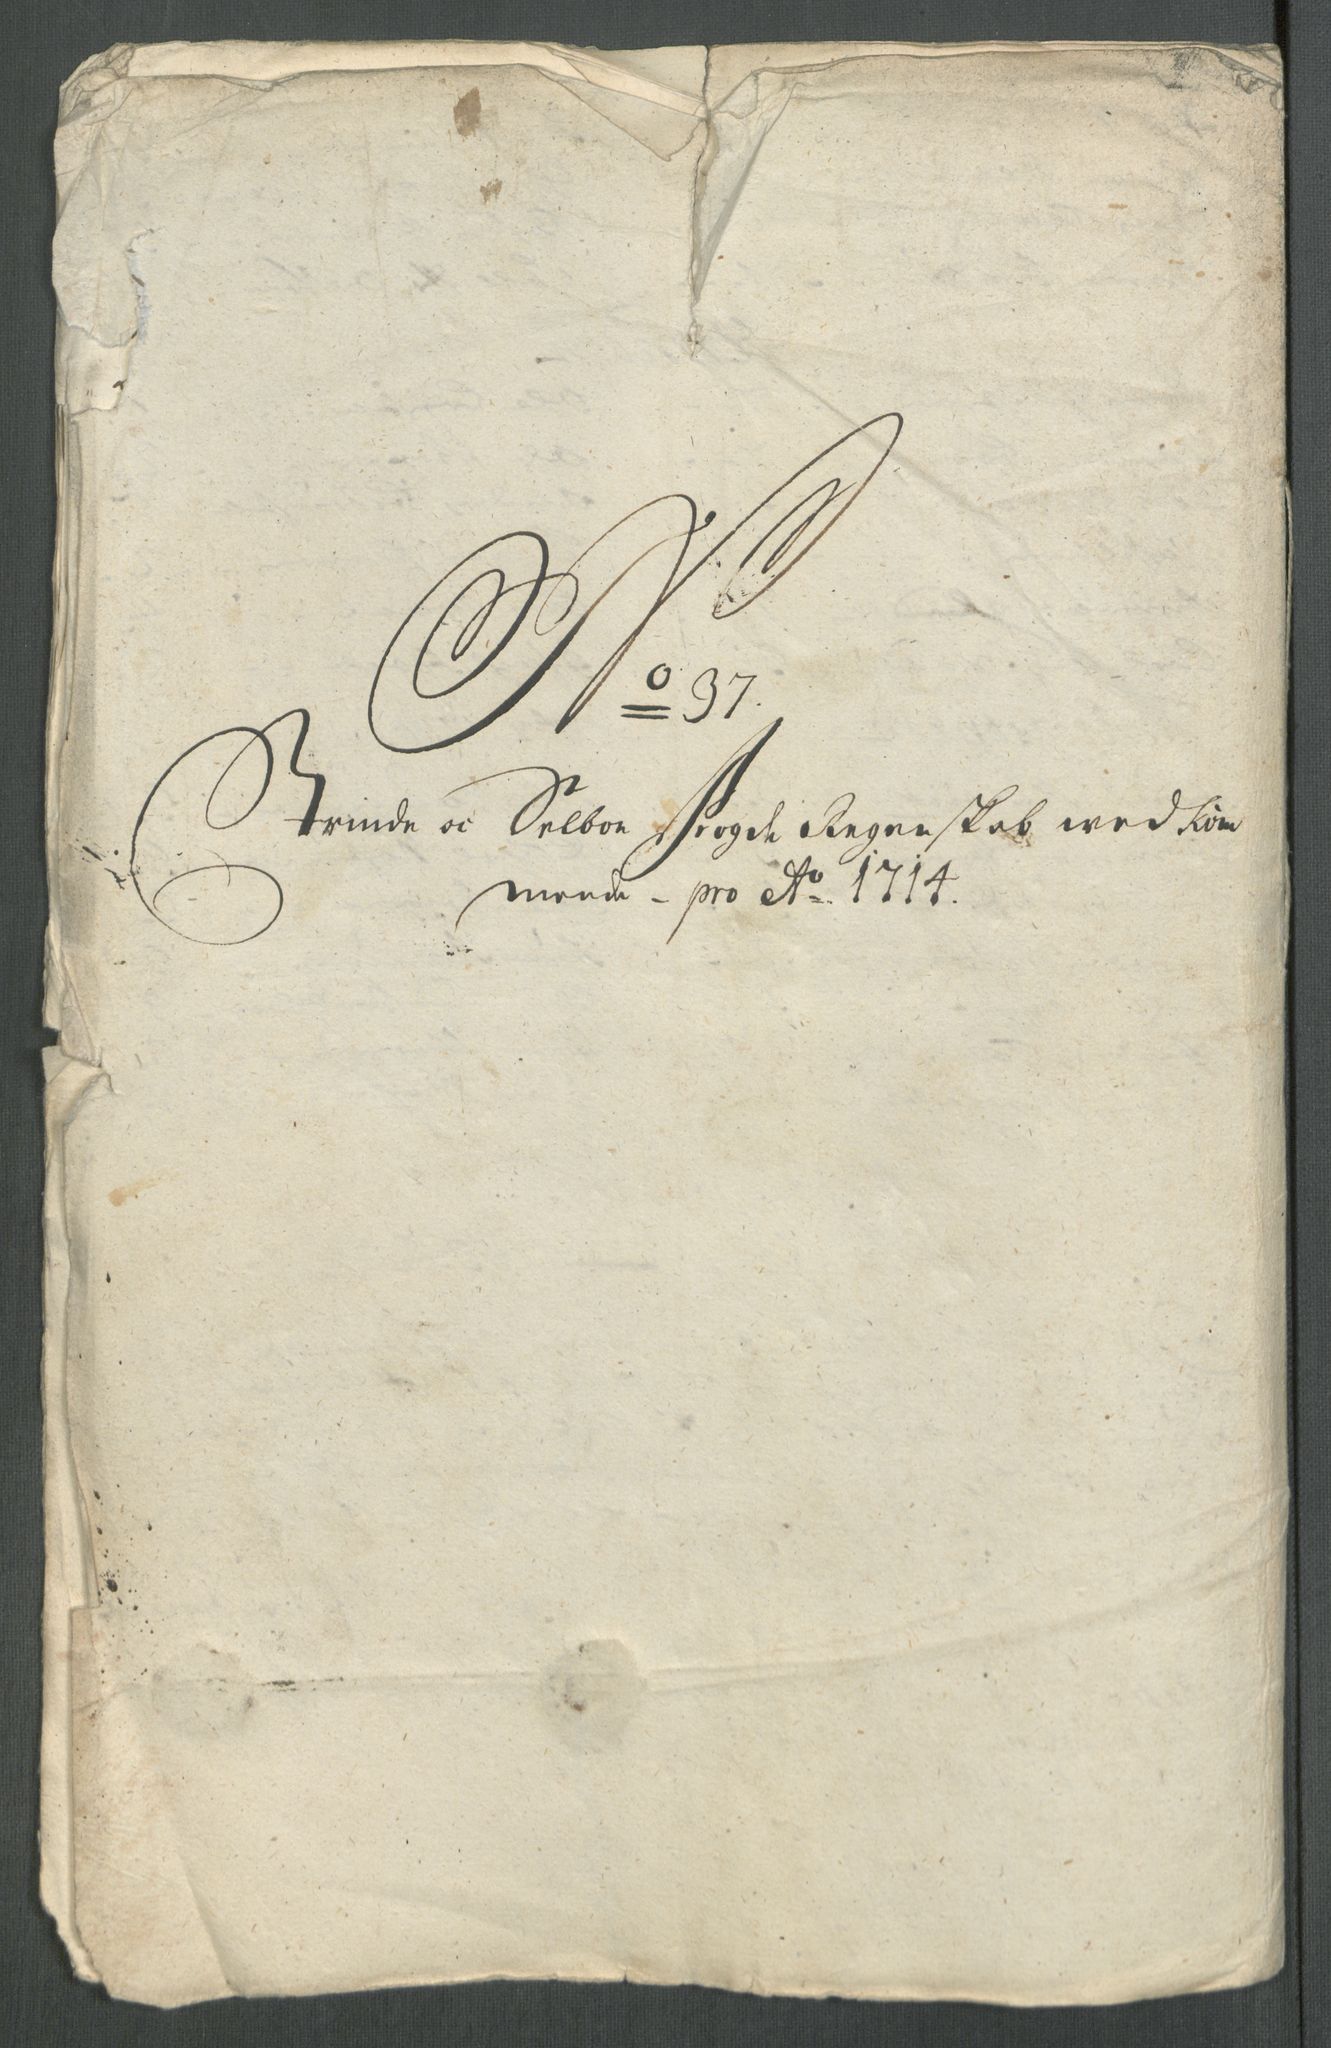 No 37.
Strinde oc Selboe Fogde Regenskab wed kom
mende - pro Ao. 1714.